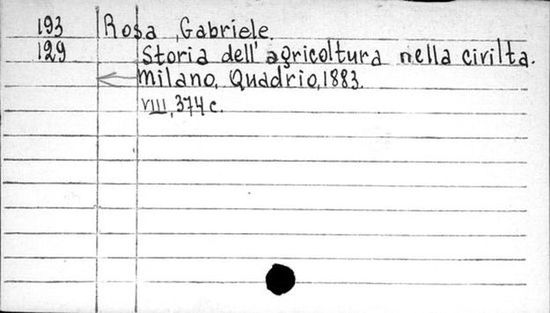 193 Rosa, Gabriele.
129 Storia dell' agricoltura nella civilta.
Milano, Quadrio, 1883.
VIII, 374 c.